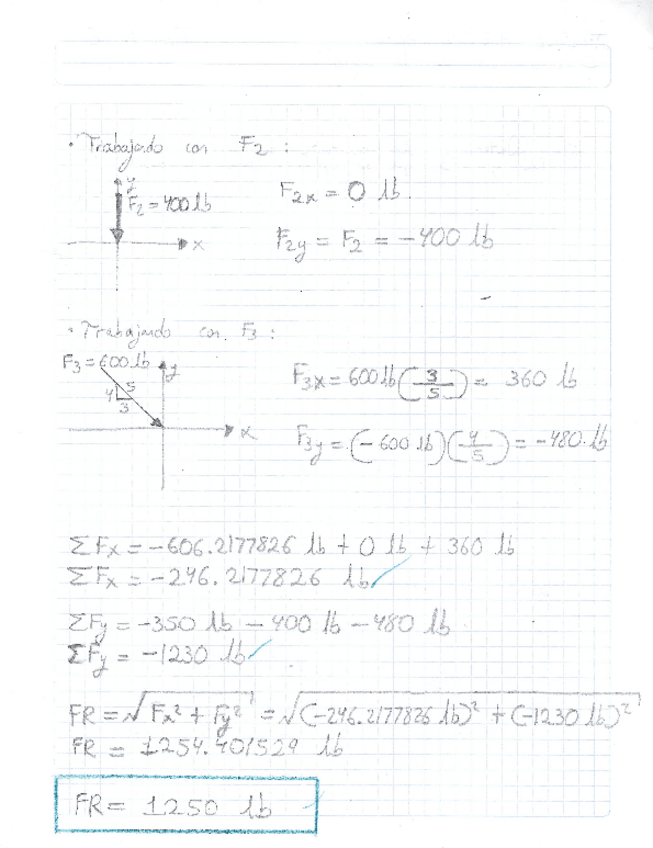 • Trabajando con F2 :
y
F2 = 400 lb
x
F2x = 0 lb.
F2y = F2 = -400 lb
• Trabajando con. F3 :
F3 = 600 lb
y
4 5
3
x
F3x = 600 lb (3/5) = 360 lb
F3y = (-600 lb)(4/5) = -480 lb
ΣFx = -606.2177826 lb + 0 lb + 360 lb
ΣFx = -246.2177826 lb ✓
ΣFy = -350 lb - 400 lb - 480 lb
ΣFy = -1230 lb ✓
FR = √Fx² + Fy² = √(-246.2177826 lb)² + (-1230 lb)²
FR = 1254.401529 lb
FR = 1250 lb